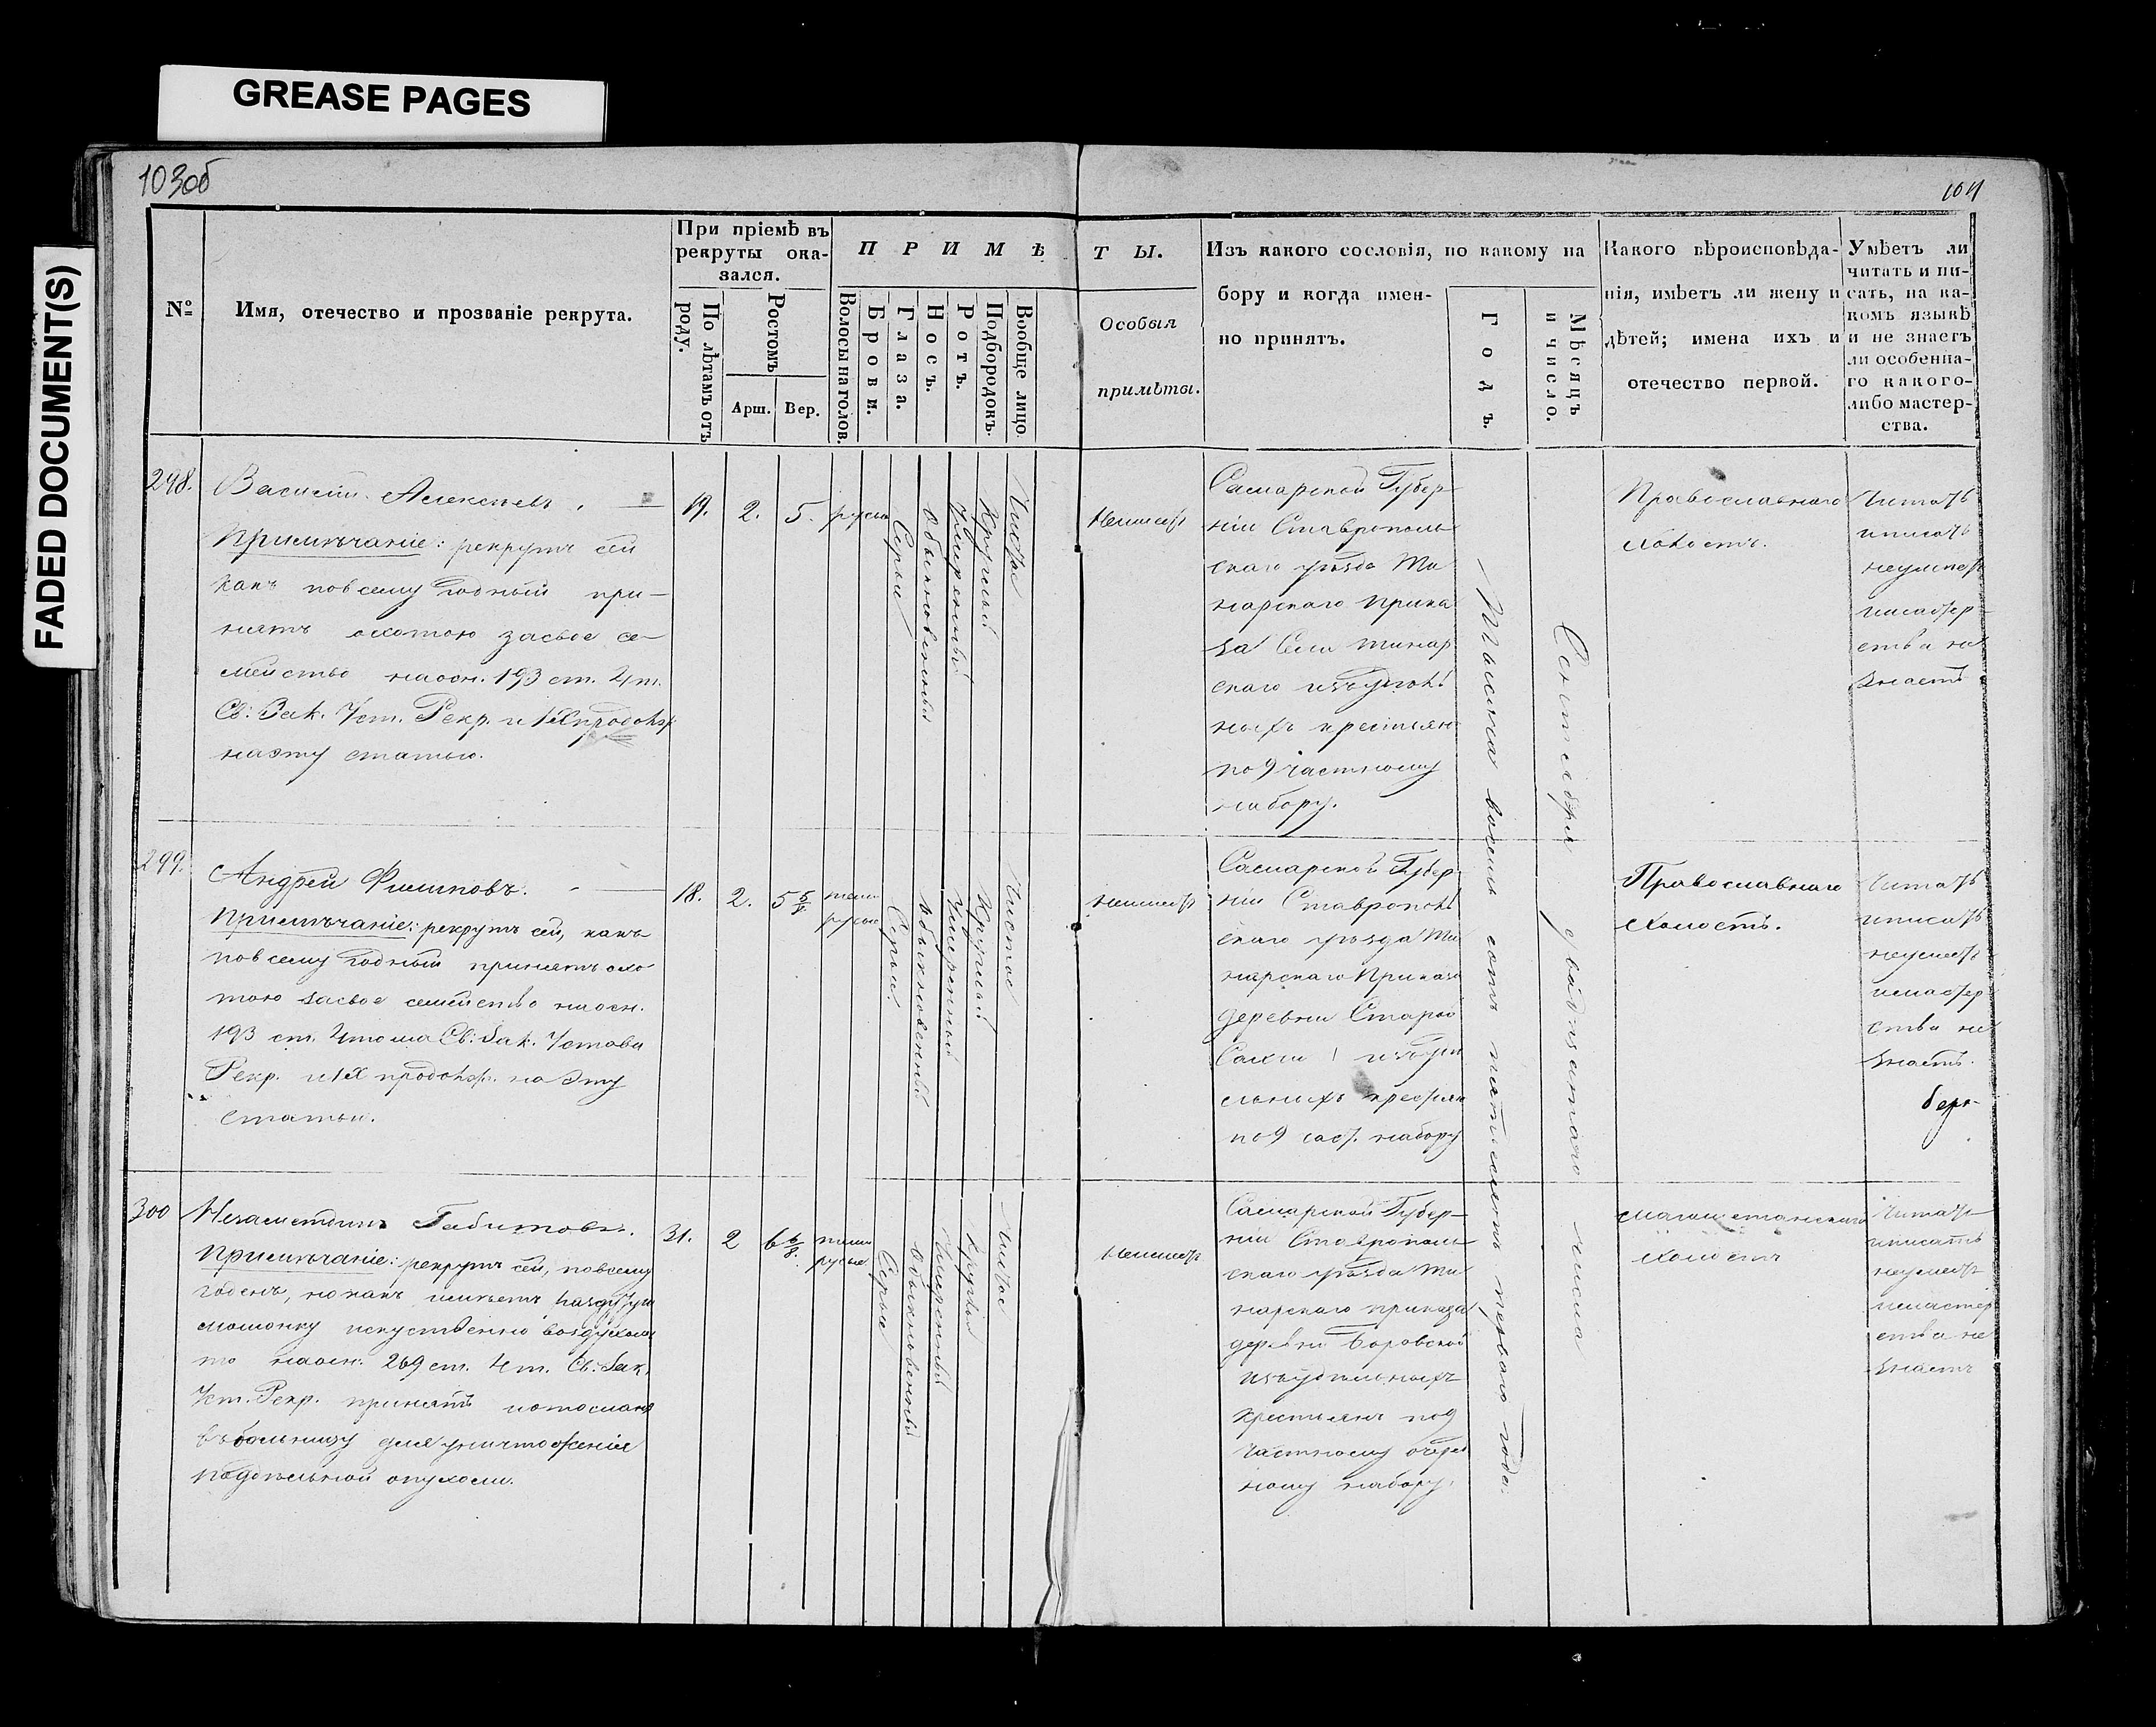 GREASE PAGES
FADED DOCUMENT(S)
103об
104
№
Имя, отечество и прозваніе рекрута.
При пріемѣ въ
рекруты ока-
зался.
По лѣтамъ отъ
роду.
Ростомъ
Арш.
Вер.
ПРИМѢТЫ.
Волосы на голов.
Брови.
Глаза.
Носъ.
Ротъ.
Подбородокъ.
Вообще лицо.
Особыя
примѣты.
Изъ какого сословія, по какому на
бору и когда имен-
но принятъ.
Годъ.
Мѣсяцъ
и число.
Какого вѣроисповѣда-
нія, имѣетъ ли жену и
дѣтей; имена ихъ и
отечество первой.
Умѣетъ ли
читать и пи-
сать, на ка-
комъ языкѣ
и не знаетъ
ли особенна-
го какого-
либо мастер-
ства.
298.
Василій Алексѣевъ.
Примѣчаніе: рекрутъ сей
какъ повсему годный при-
нятъ охотою засвое се-
мейство наосн. 193 ст. 4 т.
Св: Зак. Уст. Рекр. и IX продолж.
наэту статью.
19.
2.
5.
русые
Серые
Обыкновенный
Умеренный
Круглый
Чистое
Неимеетъ
Самарской Губер-
ніи Ставрополь
скаго уѣзда Ти
нарскаго Прика
за Села Тинар
скаго изъ удѣль
ныхъ крестьян
по 9 частному
набору.
Тысяча восемь сотъ пятьдесятъ перваго года.
Сентября двадцатаго числа
Православнаго
холостъ.
Читать
иписать
неумеетъ
имастер-
ства не
знаетъ
299.
Андрей Филиповъ.
Примѣчаніе: рекрутъ сей, какъ
повсему годный принятъ охо
тою засвое семейство наосн.
193 ст. 4 тома Св: Зак. Устава
Рекр. и IX продолж. на эту
статью.
18.
2.
5 5/8
темн
русые
Серые.
Обыкновенный
Умеренный
Круглый
Чистое
Неимеетъ
Самарской Губер
ніи Ставрополь
скаго уѣзда Ти
нарскаго Приказа
деревни Старой
изъ удѣ
льныхъ крестьян
по 9 част. набору
Православнаго
холостъ.
Читать
иписать
неумеетъ
имастер
ства не
знаетъ.
300
Габитовъ.
Примѣчаніе: рекрутъ сей, повсему
годенъ, но какъ имѣетъ раздутую
мошонку искуственно воздухомъ
то наосн: 269 ст. 4 т. Св: Зак.
Уст. Рекр. принятъ и отосланъ
въ больницу для уничтоженія
поддѣльной опухоли.
31.
2
6 6/8.
темн
русые
Серые
Обыкновенный
Умеренный
Круглый
Чистое
Неимеетъ
Самарской Губер-
ніи Ставрополь-
скаго уѣзда Ти
нарскаго приказа
деревни Боровской
изъ удѣльныхъ
крестьянъ по 9
частному очеред
ному набору.
магометанскаго
холостъ
Читать
иписать
неумеетъ
имастер
ства не
знаетъ